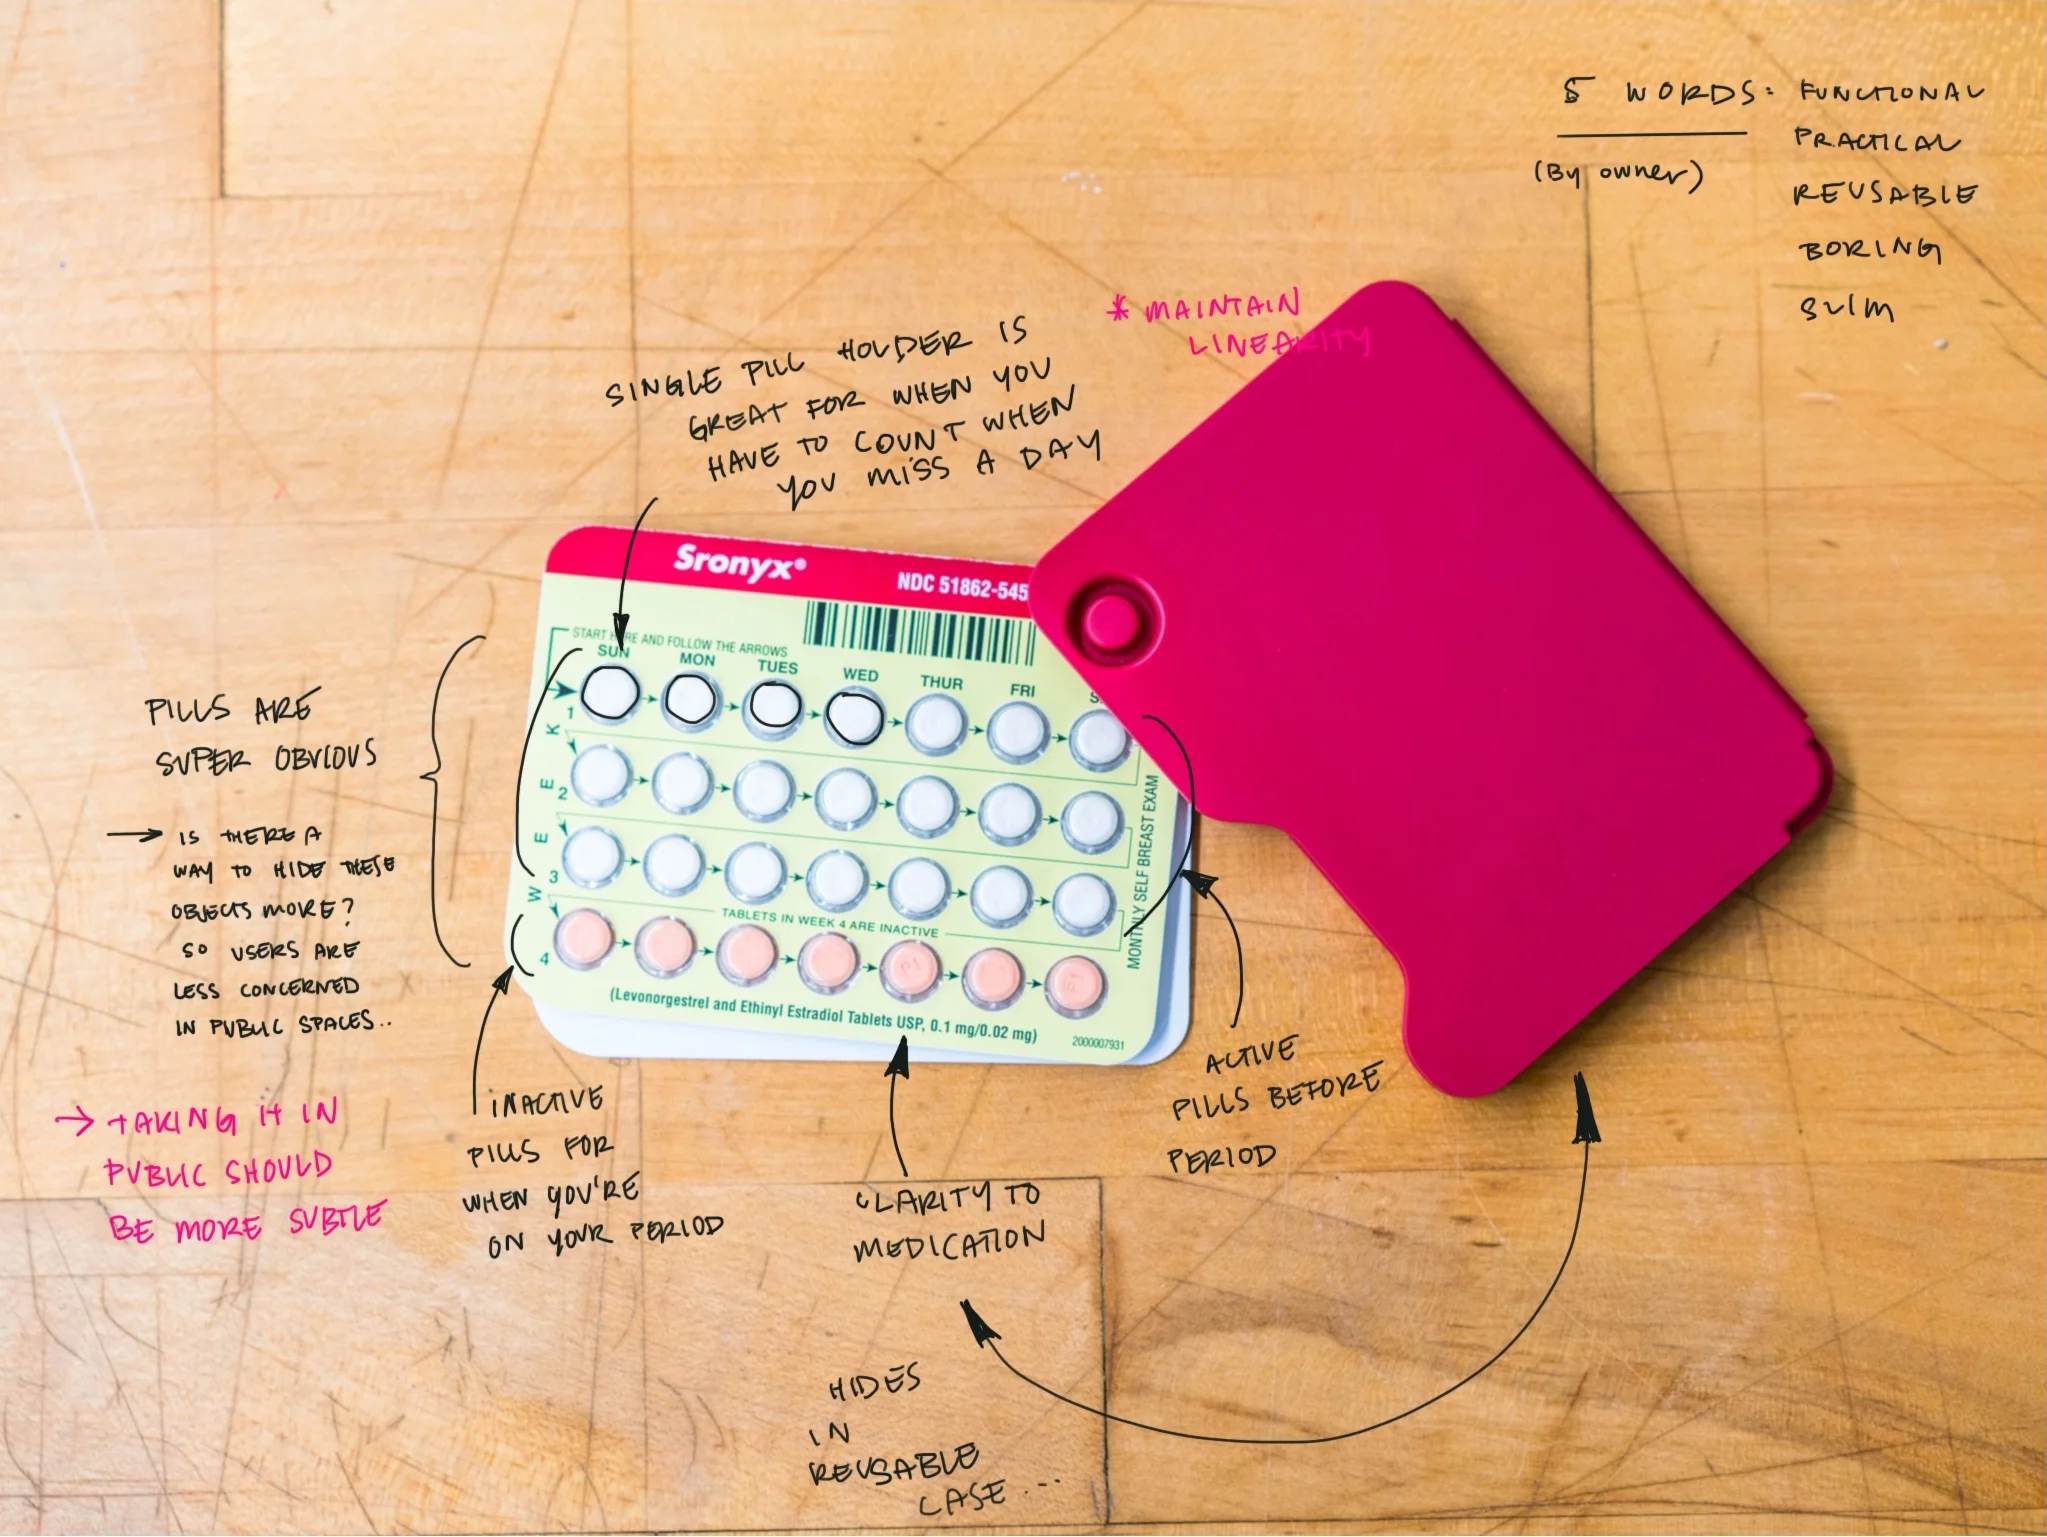 5 WORDS: FUNCTIONAL
PRACTICAL
(By owner)
REUSABLE
BORING
SLIM
* MAINTAIN
LINEARITY
SINGLE PILL HOLDER IS
GREAT FOR WHEN YOU
HAVE TO COUNT WHEN
YOU MISS A DAY
Sronyx®
NDC 51862-545
START HERE AND FOLLOW THE ARROWS
SUN MON TUES WED THUR FRI
WEEK
1
2
3
TABLETS IN WEEK 4 ARE INACTIVE
4
(Levonorgestrel and Ethinyl Estradiol Tablets USP, 0.1 mg/0.02 mg)
2000007931
MONTHLY SELF BREAST EXAM
PILLS ARE
SUPER OBVIOUS
→ IS THERE A
WAY TO HIDE THESE
OBJECTS MORE?
SO USERS ARE
LESS CONCERNED
IN PUBLIC SPACES..
→ TAKING IT IN
PUBLIC SHOULD
BE MORE SUBTLE
INACTIVE
PILLS FOR
WHEN YOU'RE
ON YOUR PERIOD
CLARITY TO
MEDICATION
ACTIVE
PILLS BEFORE
PERIOD
HIDES
IN
REUSABLE
CASE ...